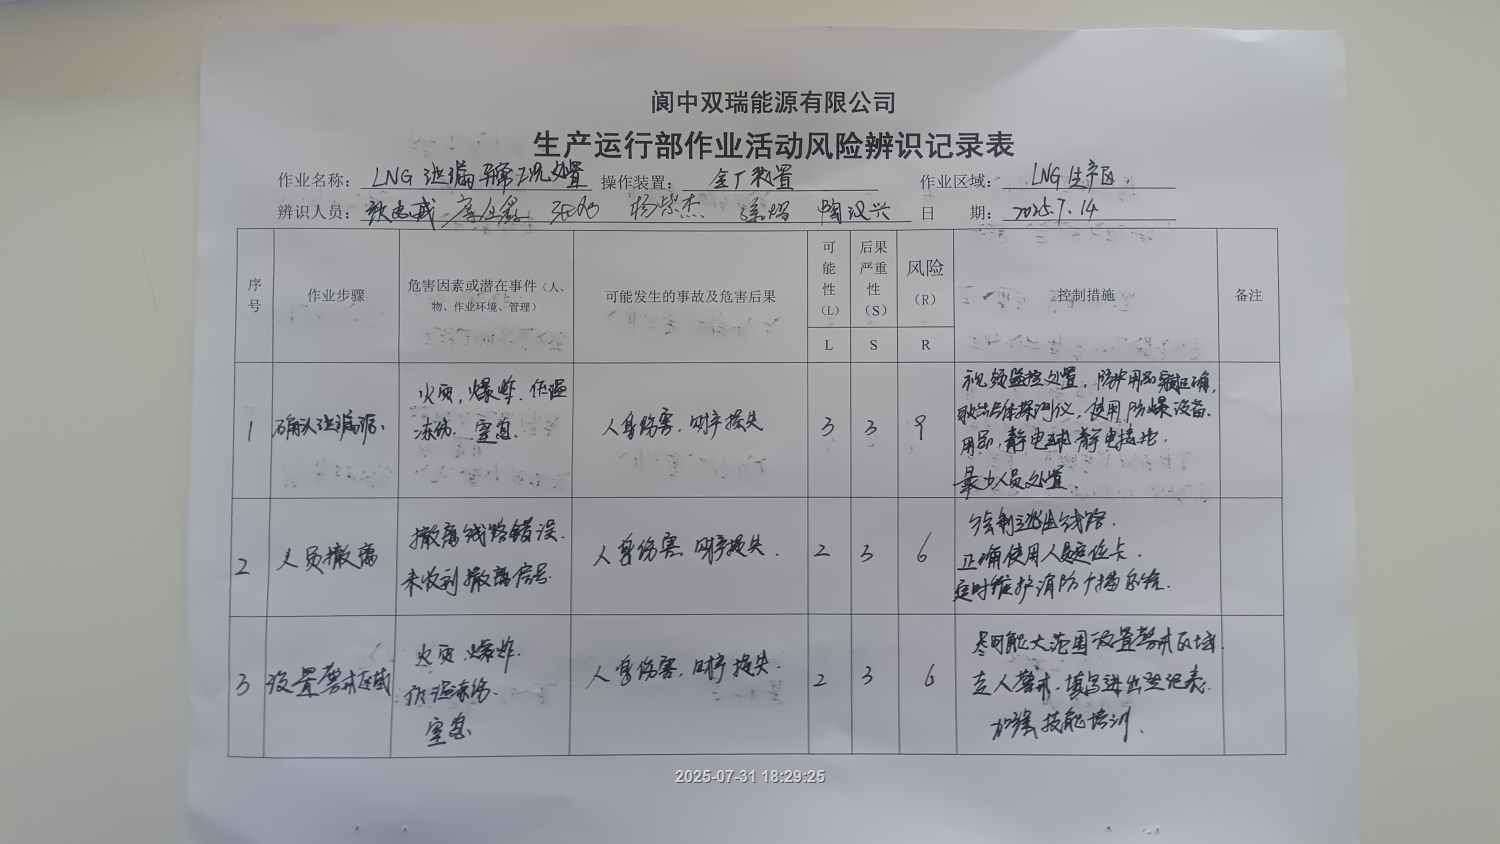 阆中双瑞能源有限公司
生产运行部作业活动风险辨识记录表
作业名称: LNG 泄漏异常工况处置 操作装置: 全厂装置 作业区域: LNG生产区
辨识人员: 杨紫杰 陶汉兴 日 期: 2025.7.14
序号 作业步骤 危害因素或潜在事件(人、物、作业环境、管理) 可能发生的事故及危害后果 可能性(L) 后果严重性(S) 风险(R) 控制措施 备注
L S R
1 确认泄漏源、 火灾,爆炸.低温 人身伤害.财产损失 3 3 9 视频监控处置,防护用品穿戴正确,
冻伤.窒息. 气体探测仪,使用防爆设备、
用品,静电球静电接地,
最少人员处置.
2 人员撤离 撤离线路错误. 人身伤害.财产损失. 2 3 6 绘制逃生线路.
未收到撤离信号. 正确使用人员定位卡.
定时维护消防广播系统.
3 设置警戒区域 火灾.爆炸. 人身伤害.财产损失. 2 3 6 尽可能大范围设置警戒区域.
低温冻伤. 专人警戒.填写进出登记表.
窒息. 加强技能培训、
2025-07-31 18:29:25